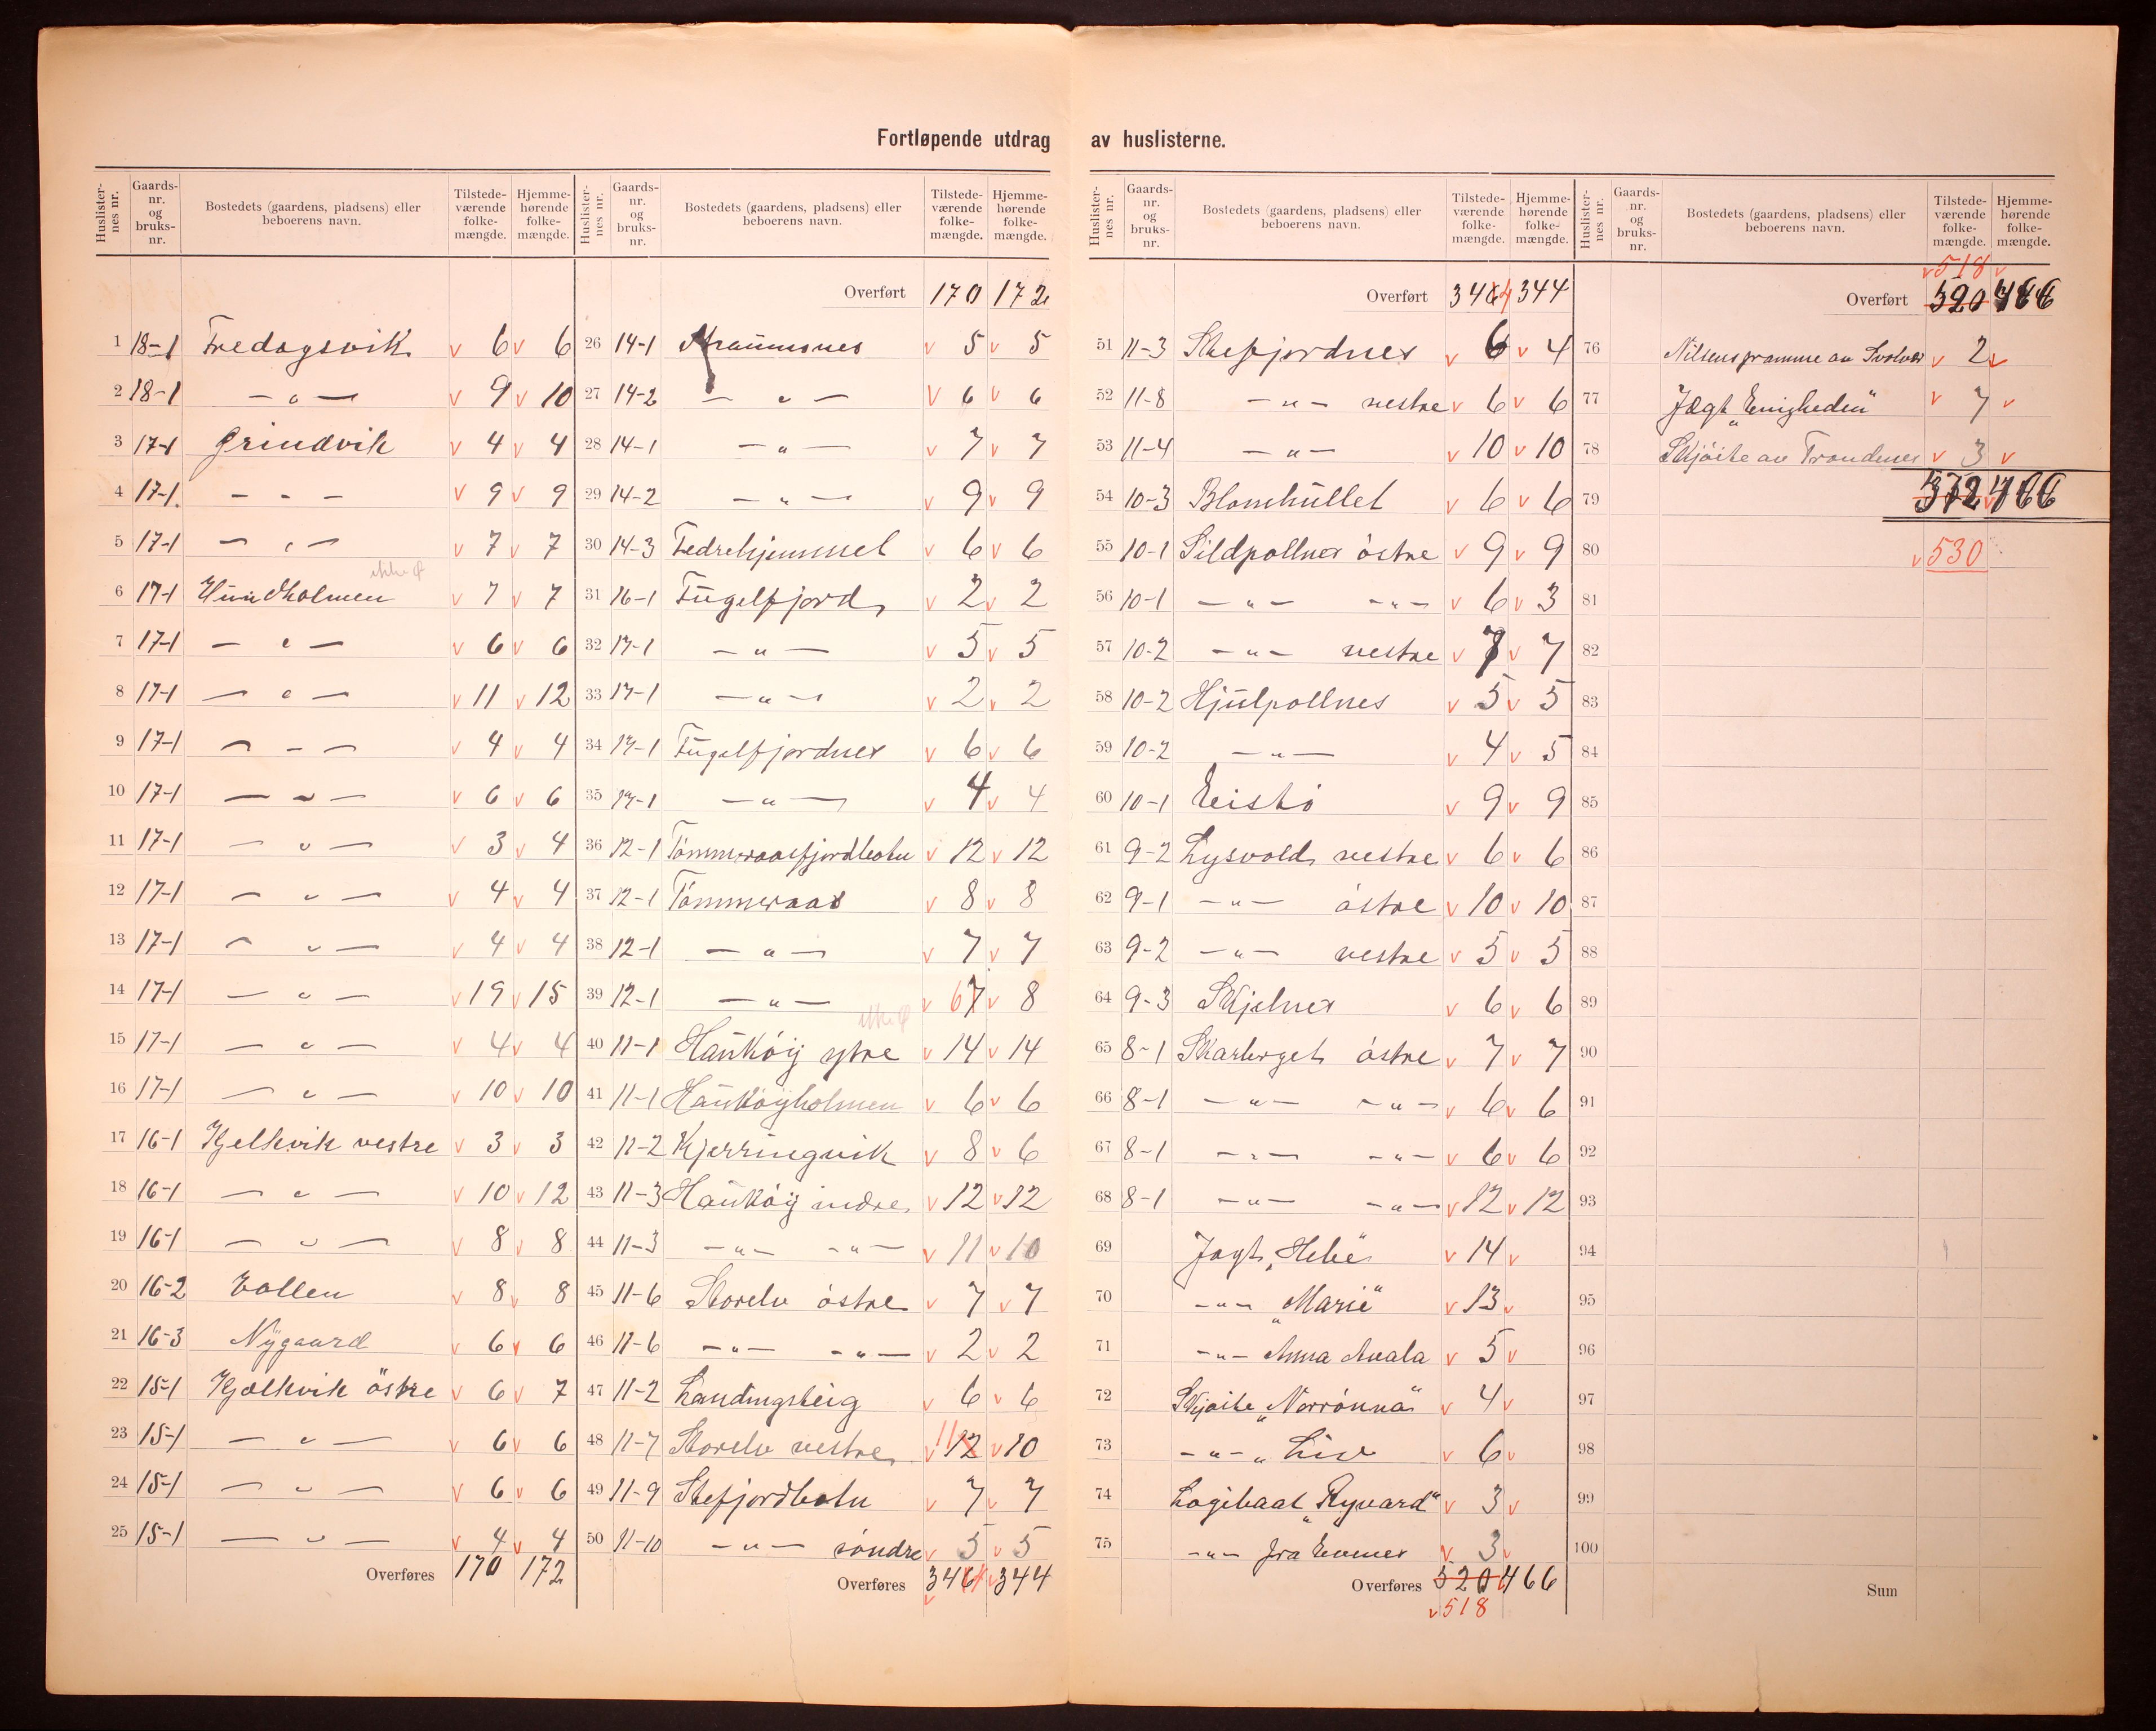 Fortløpende utdrag av huslisterne.
Huslisternes nr. Gaards-nr. og bruks-nr. Bostedets (gaardens, pladsens) eller beboerens navn. Tilstedeværende folkemængde. Hjemmehørende folkemængde.
1 18-1 Fredagsvik v 6 v 6
2 18-1 — " — v 9 v 10
3 17-1 Grindvik v 4 v 4
4 17-1 — " — v 9 v 9
5 17-1 — " — v 7 v 7
6 17-1 Hundholmen v 7 v 7
7 17-1 — " — v 6 v 6
8 17-1 — " — v 11 v 12
9 17-1 — " — v 4 v 4
10 17-1 — " — v 6 v 6
11 17-1 — " — v 3 v 4
12 17-1 — " — v 4 v 4
13 17-1 — " — v 4 v 4
14 17-1 — " — v 19 v 15
15 17-1 — " — v 4 v 4
16 17-1 — " — v 10 v 10
17 16-1 Kjelkvik vestre v 3 v 3
18 16-1 — " — v 10 v 12
19 16-1 — " — v 8 v 8
20 16-2 Vollen v 8 v 8
21 16-3 Nygaard v 6 v 6
22 15-1 Kjælkvik östre v 6 v 7
23 15-1 — " — v 6 v 6
24 15-1 — " — v 6 v 6
25 15-1 — " — v 4 v 4
Overføres 170 172
Huslisternes nr. Gaards-nr. og bruks-nr. Bostedets (gaardens, pladsens) eller beboerens navn. Tilstedeværende folkemængde. Hjemmehørende folkemængde.
Overført 170 172
26 14-1 v 5 v 5
27 14-2 — " — v 6 v 6
28 14-1 — " — v 7 v 7
29 14-2 — " — v 9 v 9
30 14-3 Fedrehjemmet v 6 v 6
31 16-1 Fugelfjord v 2 v 2
32 17-1 — " — v 5 v 5
33 17-1 — " — v 2 v 2
34 17-1 Fugelfjordnes v 6 v 6
35 17-1 — " — v 4 v 4
36 12-1 Tømmeraasfjordbotn v 12 v 12
37 12-1 Tømmeraas v 8 v 8
38 12-1 — " — v 7 v 7
39 12-1 — " — v 67 v 8
40 11-1 Haukøy ytre v 14 v 14
41 11-1 Haukøyholmen v 6 v 6
42 11-2 Kjerringvik v 8 v 6
43 11-3 Haukøy indre v 12 v 12
44 11-3 — " — — " — v 11 v 10
45 11-6 Storelv østre v 7 v 7
46 11-6 — " — — " — v 2 v 2
47 11-2 Landingsteig v 6 v 6
48 11-7 Storelv vestre v 11 12 v 10
49 11-9 Stefjordbotn v 7 v 7
50 11-10 — " — søndre v 5 v 5
Overføres 346 4 v 344
Huslisternes nr. Gaards-nr. og bruks-nr. Bostedets (gaardens, pladsens) eller beboerens navn. Tilstedeværende folkemængde. Hjemmehørende folkemængde.
Overført 346 4 344
51 11-3 Stefjordnes v 6 v 4
52 11-8 — " — vestre v 6 v 6
53 11-4 — " — v 10 v 10
54 10-3 Blomhullet v 6 v 6
55 10-1 Sildpollnes østre v 9 v 9
56 10-1 — " — — " — v 6 v 3
57 10-2 — " — vestre v 7 v 7
58 10-2 Hjulpollnes v 5 v 5
59 10-2 — " — v 4 v 5
60 10-1 Leistø v 9 v 9
61 9-2 Lysvold vestre v 6 v 6
62 9-1 — " — østre v 10 v 10
63 9-2 — " — vestre v 5 v 5
64 9-3 Skjelnes v 6 v 6
65 8-1 Skarberget østre v 7 v 7
66 8-1 — " — — " — v 6 v 6
67 8-1 — " — — " — v 6 v 6
68 8-1 — " — — " — v 12 v 12
69 Jagt „Hebe" v 14 v
70 — " — „Marie" v 13 v
71 — " — Anna Avala v 5 v
72 Skjøite „Norrønna" v 4 v
73 — " — „Liv v 6 v
74 Logibaat „Ryvard" v 3 v
75 — " — fra Evenes v 3 v
Overføres 520 466
v 518
Huslisternes nr. Gaards-nr. og bruks-nr. Bostedets (gaardens, pladsens) eller beboerens navn. Tilstedeværende folkemængde. Hjemmehørende folkemængde.
v 518 v
Overført 520 466
76 Nilsens pramme av Svolvær v 2 v
77 Jægt „Enigheden" v 7 v
78 Skjøite av Trondenes v 3 v
79 532 v 466
80 v 530
81
82
83
84
85
86
87
88
89
90
91
92
93
94
95
96
97
98
99
100
Sum